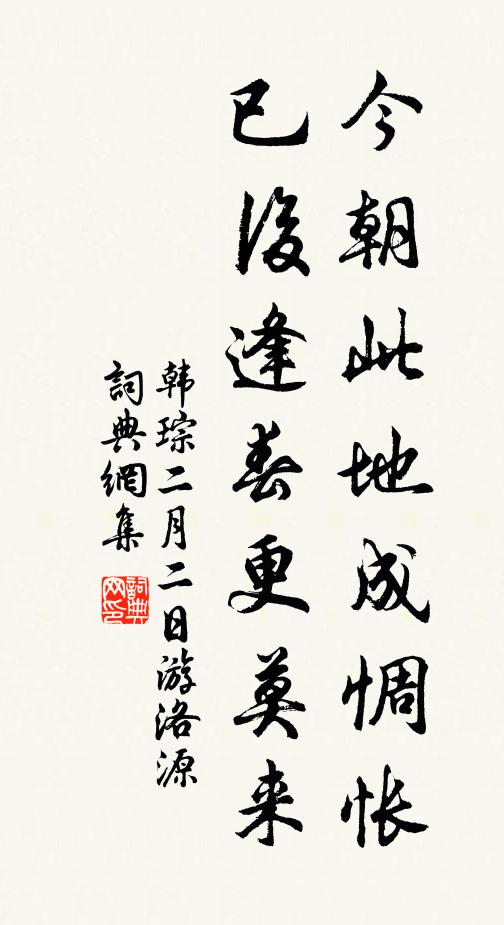 今朝此地成惆怅
已後逢春更莫来
韩琮二月二日游洛源
詞典網集
詞典网印